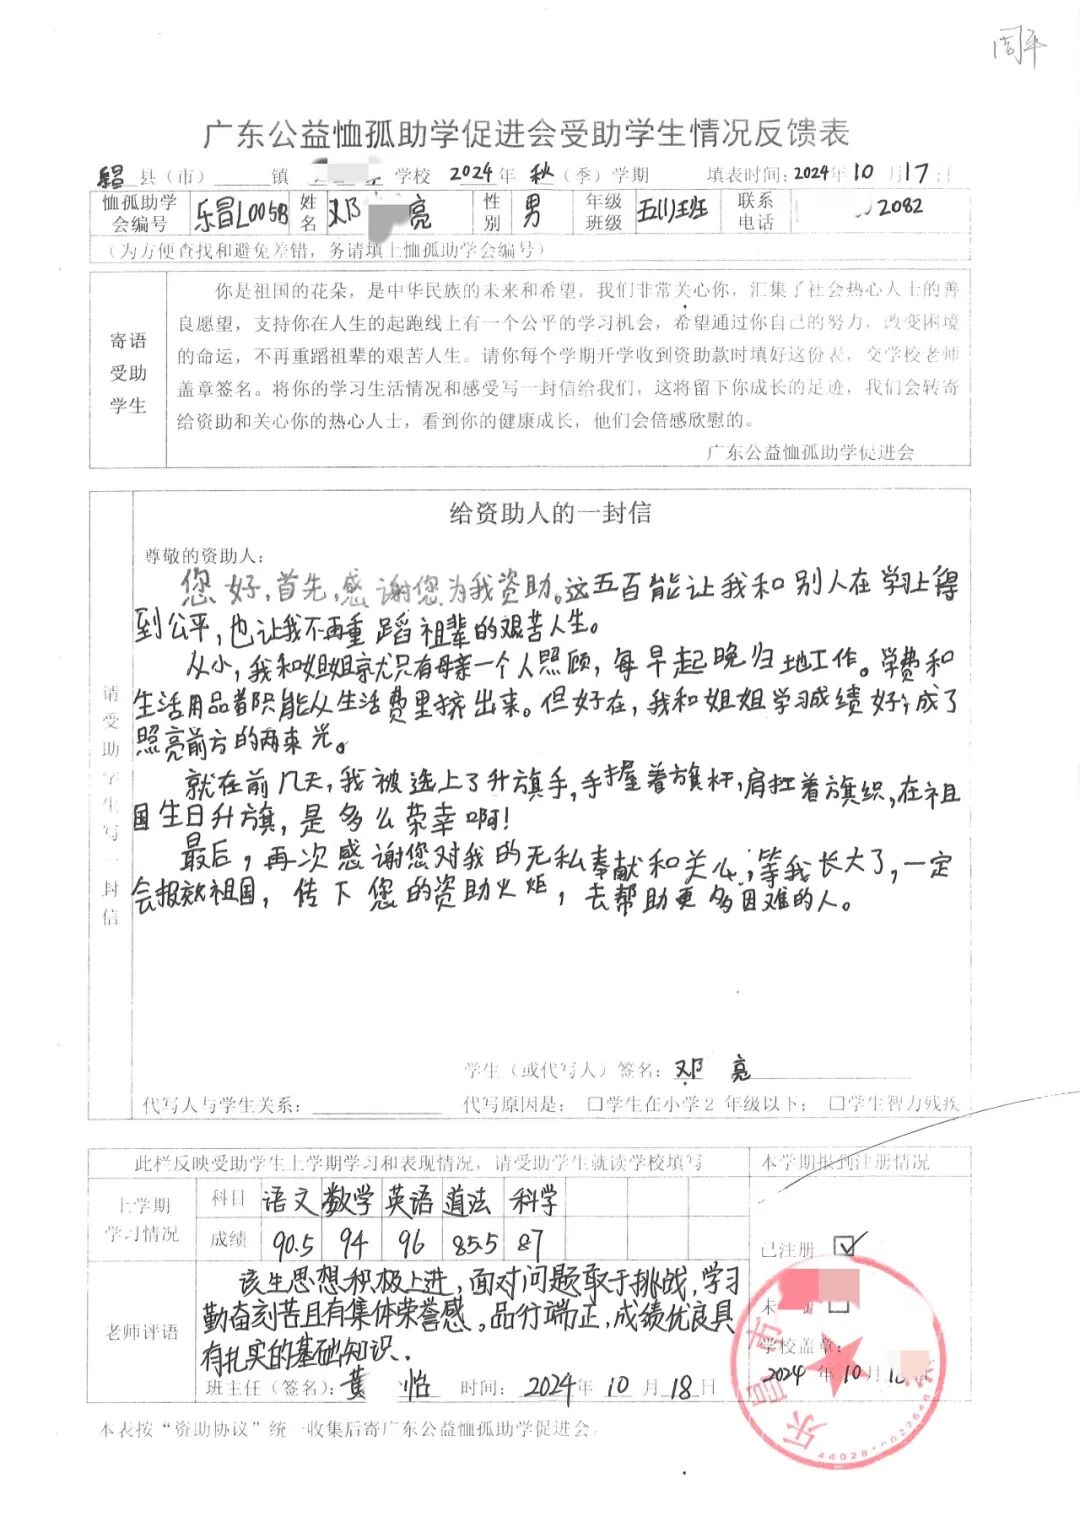 周平
广东公益恤孤助学促进会受助学生情况反馈表
县(市)____镇 学校 2024年 秋(季)学期 填表时间:2024年10月17日
恤孤助学会编号 乐昌L005B 姓名 邓 亮 性别 男 年级班级 五(1)班 联系电话 2082
(为方便查找和避免差错,务请填上恤孤助学会编号)
寄语受助学生
你是祖国的花朵,是中华民族的未来和希望,我们非常关心你,汇集了社会热心人士的善
良愿望,支持你在人生的起跑线上有一个公平的学习机会,希望通过你自己的努力,改变困境
的命运,不再重蹈祖辈的艰苦人生。请你每个学期开学收到资助款时填好这份表,交学校老师
盖章签名。将你的学习生活情况和感受写一封信给我们,这将留下你成长的足迹,我们会转寄
给资助和关心你的热心人士,看到你的健康成长,他们会倍感欣慰的。
广东公益恤孤助学促进会
请受助学生写一封信
给资助人的一封信
尊敬的资助人:
您好,首先,感谢您为我资助。这五百能让我和别人在学习上得
到公平,也让我不再重蹈祖辈的艰苦人生。
从小,我和姐姐就只有母亲一个人照顾,每早起晚归地工作。学费和
生活用品都只能从生活费里挤出来。但好在,我和姐姐学习成绩好,成了
照亮前方的两束光。
就在前几天,我被选上了升旗手,手握着旗杆,肩扛着旗织,在祖
国生日升旗,是多么荣幸啊!
最后,再次感谢您对我的无私奉献和关心,等我长大了,一定
会报效祖国,传下您的资助火炬,去帮助更多困难的人。
学生(或代写人)签名:邓 亮
代写人与学生关系:________ 代写原因是: □学生在小学2年级以下; □学生智力残疾
此栏反映受助学生上学期学习和表现情况,请受助学生就读学校填写 本学期报到注册情况
上学期学习情况
科目 语文 数学 英语 道法 科学
成绩 90.5 94 96 85.5 87
已注册 ☑
未 □
老师评语
该生思想积极上进,面对问题敢于挑战,学习
勤奋刻苦且有集体荣誉感。品行端正,成绩优良具
有扎实的基础知识.
班主任(签名):黄 怡 时间:2024年10月18日
学校盖章:
2024年10月
乐昌市
本表按“资助协议”统一收集后寄广东公益恤孤助学促进会。